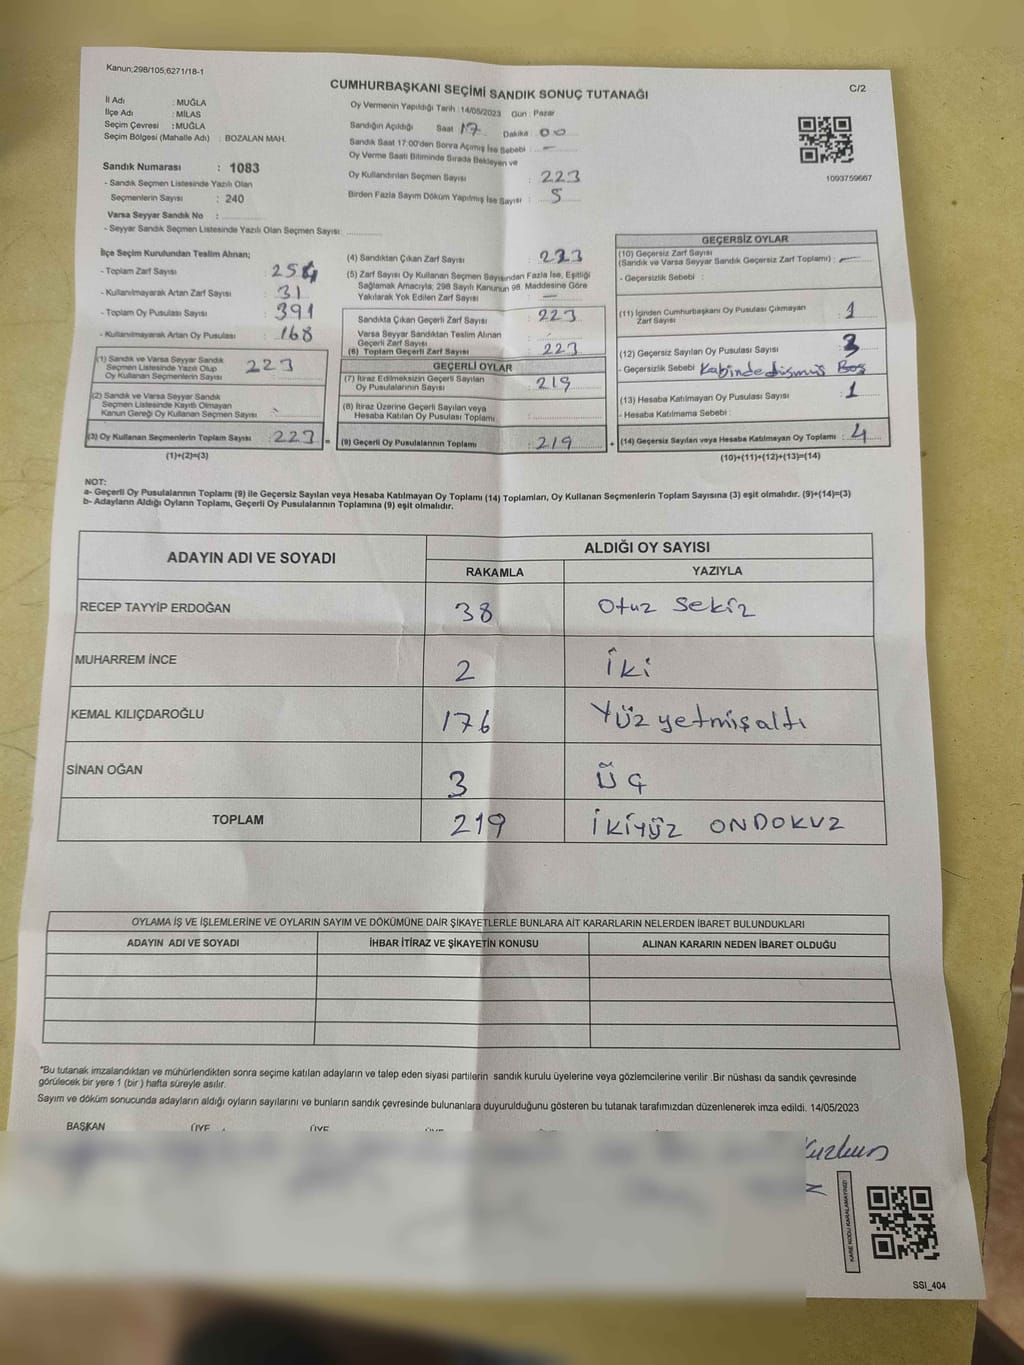 Kanun;298/105;6271/18-1
CUMHURBAŞKANI SEÇİMİ SANDIK SONUÇ TUTANAĞI
C/2
İl Adı : MUĞLA
İlçe Adı : MİLAS
Seçim Çevresi : MUĞLA
Seçim Bölgesi (Mahalle Adı) : BOZALAN MAH.
Oy Vermenin Yapıldığı Tarih : 14/05/2023 Gün : Pazar
Sandığın Açıldığı Saat 17 Dakika : 00
Sandık Saat 17:00'den Sonra Açımış İse Sebebi : —
Oy Verme Saati Bitiminde Sırada Bekleyen ve
Oy Kullandırılan Seçmen Sayısı : 223
Birden Fazla Sayım Döküm Yapılmış İse Sayısı : 5
1093759667
Sandık Numarası : 1083
- Sandık Seçmen Listesinde Yazılı Olan
Seçmenlerin Sayısı : 240
Varsa Seyyar Sandık No :
- Seyyar Sandık Seçmen Listesinde Yazılı Olan Seçmen Sayısı :
İlçe Seçim Kurulundan Teslim Alınan;
- Toplam Zarf Sayısı : 254
- Kullanılmayarak Artan Zarf Sayısı : 31
- Toplam Oy Pusulası Sayısı : 391
- Kullanılmayarak Artan Oy Pusulası : 168
(1) Sandık ve Varsa Seyyar Sandık
Seçmen Listesinde Yazılı Olup
Oy Kullanan Seçmenlerin Sayısı : 223
(2) Sandık ve Varsa Seyyar Sandık
Seçmen Listesinde Kayıtlı Olmayan
Kanun Gereği Oy Kullanan Seçmen Sayısı :
(3) Oy Kullanan Seçmenlerin Toplam Sayısı : 223 =
(1)+(2)=(3)
(4) Sandıktan Çıkan Zarf Sayısı : 223
(5) Zarf Sayısı Oy Kullanan Seçmen Sayısından Fazla İse, Eşitliği
Sağlamak Amacıyla; 298 Sayılı Kanunun 98. Maddesine Göre
Yakılarak Yok Edilen Zarf Sayısı : —
Sandıkta Çıkan Geçerli Zarf Sayısı : 223
Varsa Seyyar Sandıktan Teslim Alınan
Geçerli Zarf Sayısı :
(6) Toplam Geçerli Zarf Sayısı : 223
GEÇERLİ OYLAR
(7) İtiraz Edilmeksizin Geçerli Sayılan
Oy Pusulalarının Sayısı : 219
(8) İtiraz Üzerine Geçerli Sayılan veya
Hesaba Katılan Oy Pusulası Toplamı :
(9) Geçerli Oy Pusulalarının Toplamı : 219 +
GEÇERSİZ OYLAR
(10) Geçersiz Zarf Sayısı
(Sandık ve Varsa Seyyar Sandık Geçersiz Zarf Toplamı) : —
- Geçersizlik Sebebi :
(11) İçinden Cumhurbaşkanı Oy Pusulası Çıkmayan
Zarf Sayısı : 1
(12) Geçersiz Sayılan Oy Pusulası Sayısı : 3
- Geçersizlik Sebebi Kabinde düşmüş Boş
(13) Hesaba Katılmayan Oy Pusulası Sayısı : 1
- Hesaba Katılmama Sebebi :
(14) Geçersiz Sayılan veya Hesaba Katılmayan Oy Toplamı : 4
(10)+(11)+(12)+(13)=(14)
NOT:
a- Geçerli Oy Pusulalarının Toplamı (9) ile Geçersiz Sayılan veya Hesaba Katılmayan Oy Toplamı (14) Toplamları, Oy Kullanan Seçmenlerin Toplam Sayısına (3) eşit olmalıdır. (9)+(14)=(3)
b- Adayların Aldığı Oyların Toplamı, Geçerli Oy Pusulalarının Toplamına (9) eşit olmalıdır.
ADAYIN ADI VE SOYADI
ALDIĞI OY SAYISI
RAKAMLA YAZIYLA
RECEP TAYYİP ERDOĞAN 38 Otuz Sekiz
MUHARREM İNCE 2 İki
KEMAL KILIÇDAROĞLU 176 Yüz yetmiş altı
SİNAN OĞAN 3 Üç
TOPLAM 219 İKİYÜZ ONDOKUZ
OYLAMA İŞ VE İŞLEMLERİNE VE OYLARIN SAYIM VE DÖKÜMÜNE DAİR ŞİKAYETLERLE BUNLARA AİT KARARLARIN NELERDEN İBARET BULUNDUKLARI
ADAYIN ADI VE SOYADI İHBAR İTİRAZ VE ŞİKAYETİN KONUSU ALINAN KARARIN NEDEN İBARET OLDUĞU
"Bu tutanak imzalandıktan ve mühürlendikten sonra seçime katılan adayların ve talep eden siyasi partilerin sandık kurulu üyelerine veya gözlemcilerine verilir .Bir nüshası da sandık çevresinde
görülecek bir yere 1 (bir ) hafta süreyle asılır.
Sayım ve döküm sonucunda adayların aldığı oyların sayılarını ve bunların sandık çevresinde bulunanlara duyurulduğunu gösteren bu tutanak tarafımızdan düzenlenerek imza edildi. 14/05/2023
BAŞKAN ÜYE ÜYE
KARE KODU KARALAMAYINIZ!
SSI_404